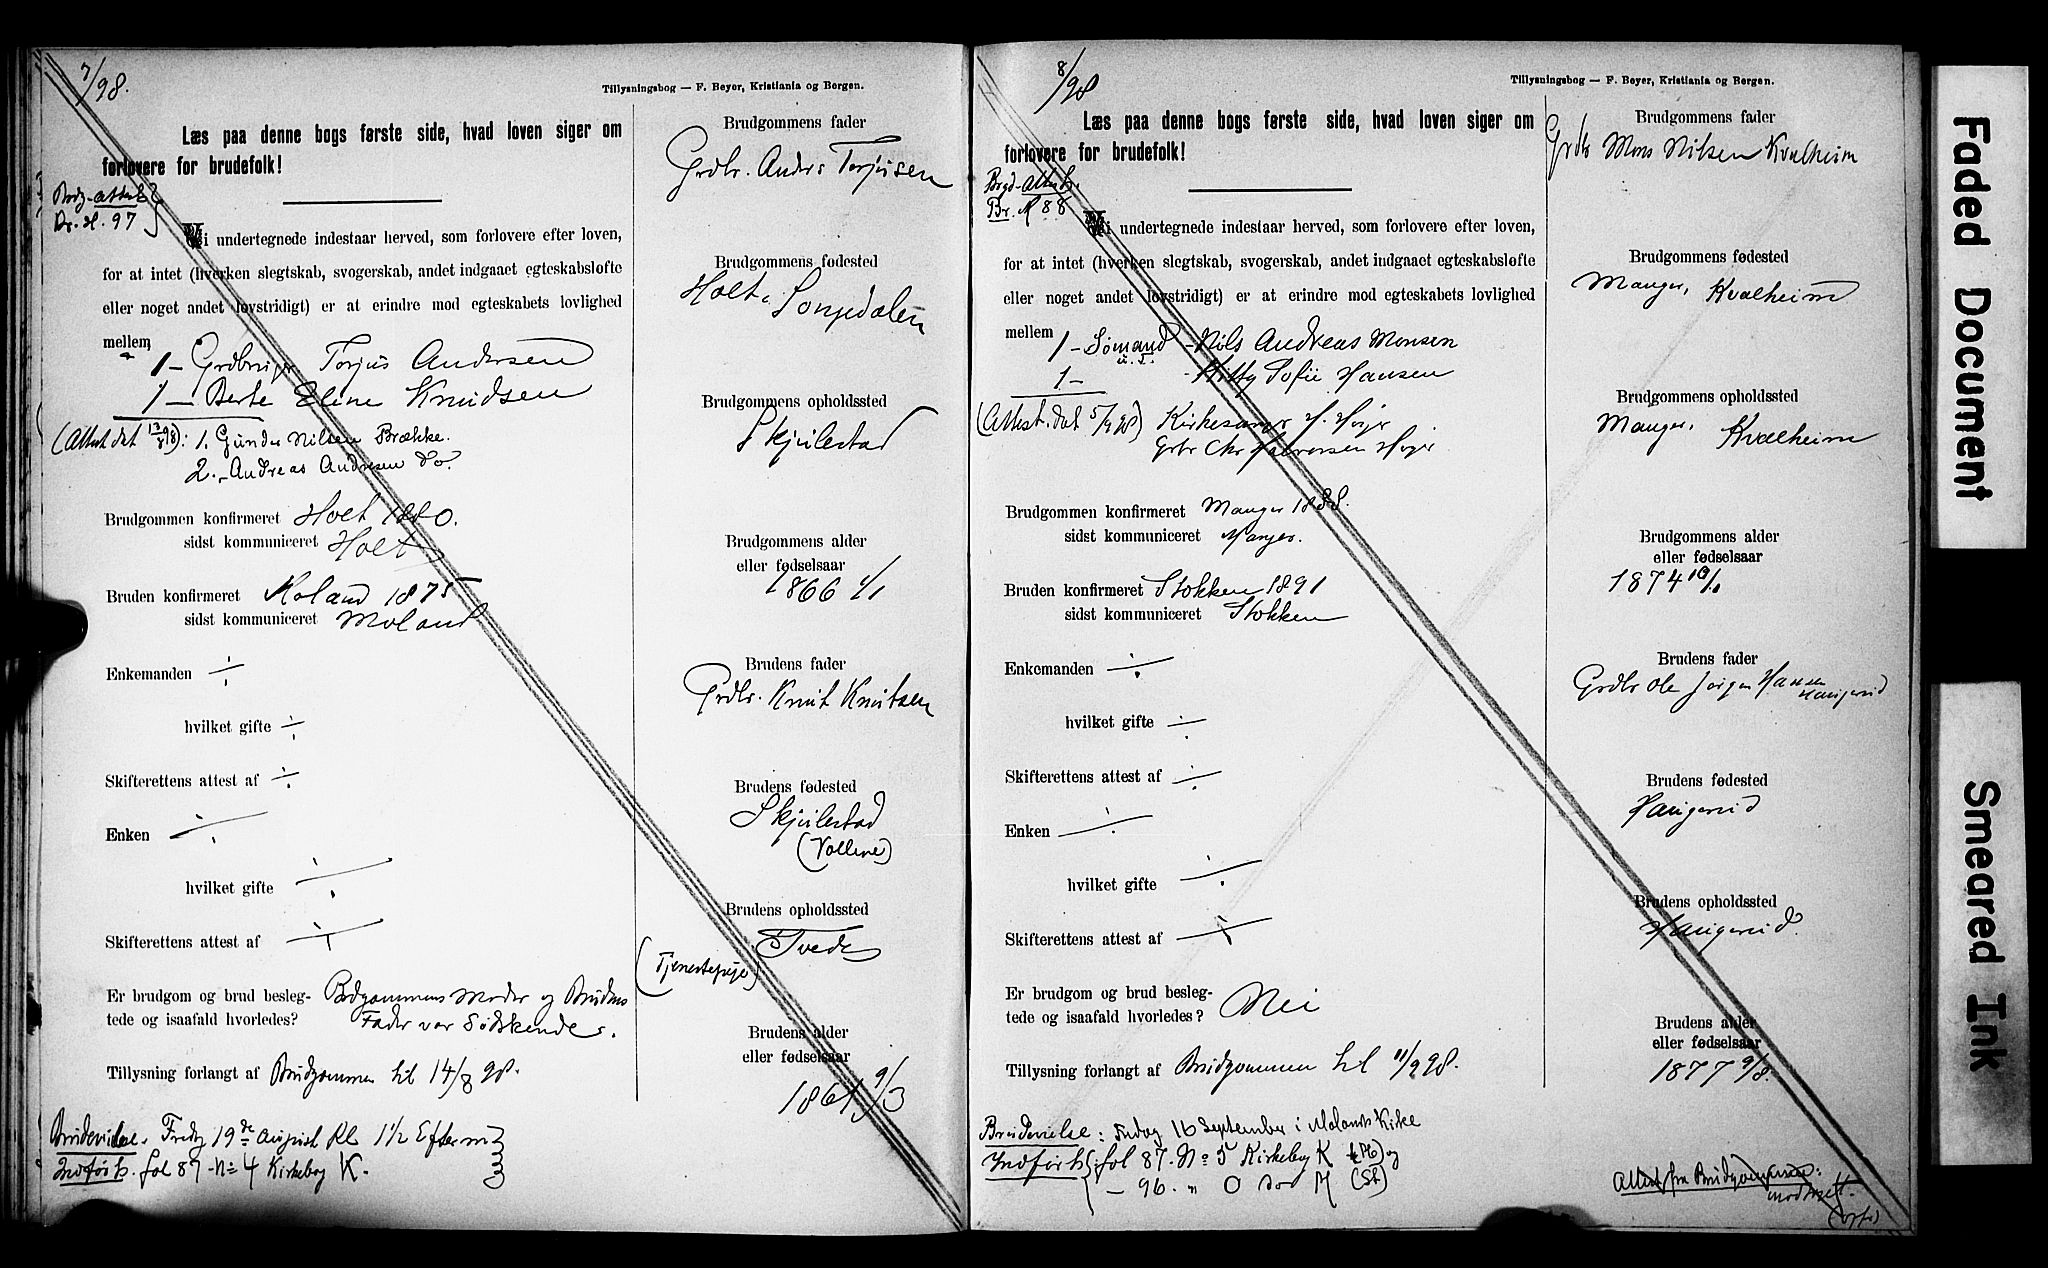 7/98.
Tillysningsbog — F. Beyer, Kristiania og Bergen.
Læs paa denne bogs første side, hvad loven siger om
forlovere for brudefolk!
Brdg-attest
Br. H. 97
Vi undertegnede indestaar herved, som forlovere efter loven,
for at intet (hverken slegtskab, svogerskab, andet indgaaet egteskabsløfte
eller noget andet lovstridigt) er at erindre mod egteskabets lovlighed
mellem
1 - Grdbruger Torjus Andersen
1 - Berte Eline Knudsen
(Attest dat 13/8 98): 1. Gunder Nilsen Brække.
2. Andreas Andresen do.
Brudgommen konfirmeret Holt 1880.
sidst kommuniceret Holt
Bruden konfirmeret Moland 1875
sidst kommuniceret Moland
Enkemanden ÷
hvilket gifte ÷
Skifterettens attest af ÷
Enken ÷
hvilket gifte ÷
Skifterettens attest af ÷
Er brudgom og brud besleg- Brdgommens Moder og Brudens
tede og isaafald hvorledes? Fader var Sødskende.
Tillysning forlangt af Brudgommen til 14/8 98.
Brudevielse. Fredag 19de August Kl 1½ Efterm
Indført. fol 87 - No 4 Kirkebog K.
Brudgommens fader
Grdbr. Anders Torjusen
Brudgommens fødested
Holt, Songedalen
Brudgommens opholdssted
Skjulestad
Brudgommens alder
eller fødselsaar
1866 4/1
Brudens fader
Grdbr. Knut Knutsen
Brudens fødested
Skjulestad
(Vollene)
Brudens opholdssted
Tvede
(Tjenestepige)
Brudens alder
eller fødselsaar
1861 9/3
8/98
Tillysningsbog — F. Beyer, Kristiania og Bergen.
Læs paa denne bogs første side, hvad loven siger om
forlovere for brudefolk!
Brgd-Attest.
Br. M 88
Vi undertegnede indestaar herved, som forlovere efter loven,
for at intet (hverken slegtskab, svogerskab, andet indgaaet egteskabsløfte
eller noget andet lovstridigt) er at erindre mod egteskabets lovlighed
mellem
1 - Sømand - Nils Andreas Monsen
1 - - Kitty Sofie Hansen
(Attest. dat 5/9 98) Kirkesanger H. Høgr
Grbr Chr Halvorsen Høgr
Brudgommen konfirmeret Manger 1888.
sidst kommuniceret Manger.
Bruden konfirmeret Stokken 1891
sidst kommuniceret Stokken
Enkemanden ÷
hvilket gifte ÷
Skifterettens attest af ÷
Enken ÷
hvilket gifte ÷
Skifterettens attest af ÷
Er brudgom og brud besleg-
tede og isaafald hvorledes? Nei
Tillysning forlangt af Brudgommen til 11/9 98.
Brudevielse: Fredag 16 September i Molands Kirke
Indført fol 87. No 5 Kirkebog K (Mo) og
— 96. " O do M (St)
Brudgommens fader
Grdbr Mons Nilsen Kvalheim
Brudgommens fødested
Manger, Kvalheim
Brudgommens opholdssted
Manger, Kvalheim
Brudgommens alder
eller fødselsaar
1874
Brudens fader
Grdbr Ole Jørgen Hansen
Haugerud
Brudens fødested
Haugerud
Brudens opholdssted
Haugerud.
Brudens alder
eller fødselsaar
1877 9/8.
Attest fra Brudgommen:
modtaget.
Faded Document
Smeared Ink